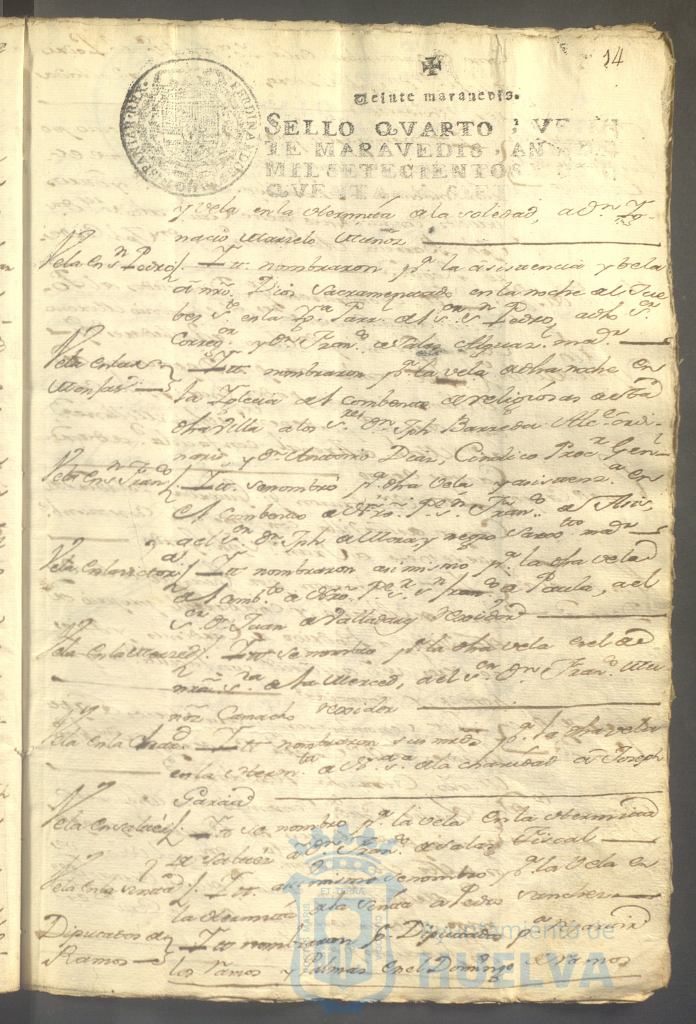 14
Veinte maravedis.
SELLO QVARTO, VE
TE MARAVEDIS, AN
MIL SETECIENTOS
QVENTA
FERDINANDUS HISPANIAR. REX
y vela en la Hermita de la Soledad, a Dn. Ig-
nacio Marselo Muñoz
Vela en Sn. Pedro Itt. nombraron pa. la asistencia y vela
a nro. Dios Sacramentado en la noche del Jue-
bes Sto. en la Parr. del Sn. Sn. Pedro, a dho Sr.
Corregor. y Dn. Franco. de Salas Alguaz. mar.
Vela en las Monjas Itt. nombraron pa. la vela dha noche en
la Iglecia del combento de religiosas de esta
dha Villa a los Sres. Dn. Jph Barreda Alce. ordi-
nario y Dn. Antonio Diaz, Cindico Procr. Genl.
Vela en Sn. Franco. Itt. se nombro pa. dha vela y asistenza. en
el combento de Nro. Pe. Sn. Franco. de Asis,
a el Sr. Dn. Jph de Mora y negro
Vela en la victoria Itt. nombraron asimismo pa. la dha vela
del Combto. de Nro. Pe. Sn. Franco. de Paula, a el
Sr. Dn. Juan de Valladares rexidor
Vela en la Merced Itt. se nombro pa. la dha vela en el de
nra. Sra. de la Merced, a el Sr. Dn. Franco. Mu-
ñoz Camacho rexidor
Vela en la Chard. Itt. nombraron pa. la dha vela
en la Hermta. de Na. Sa. de la Charidad a Joseph
Garcia
Vela en Saluci Itt. se nombro pa. la vela en la Hermita
de Saluci a Dn. Franco. de Salas Fiscal
Vela en la Itt. asimismo se nombro pa. la vela en
la Hermita de la a Pedro Sanches
Diputados de Ramos Itt. nombraron pr. Diputados pa.
los Ramos y Palmas en el Domingo de Ramos
Ayuntamiento de
HUELVA